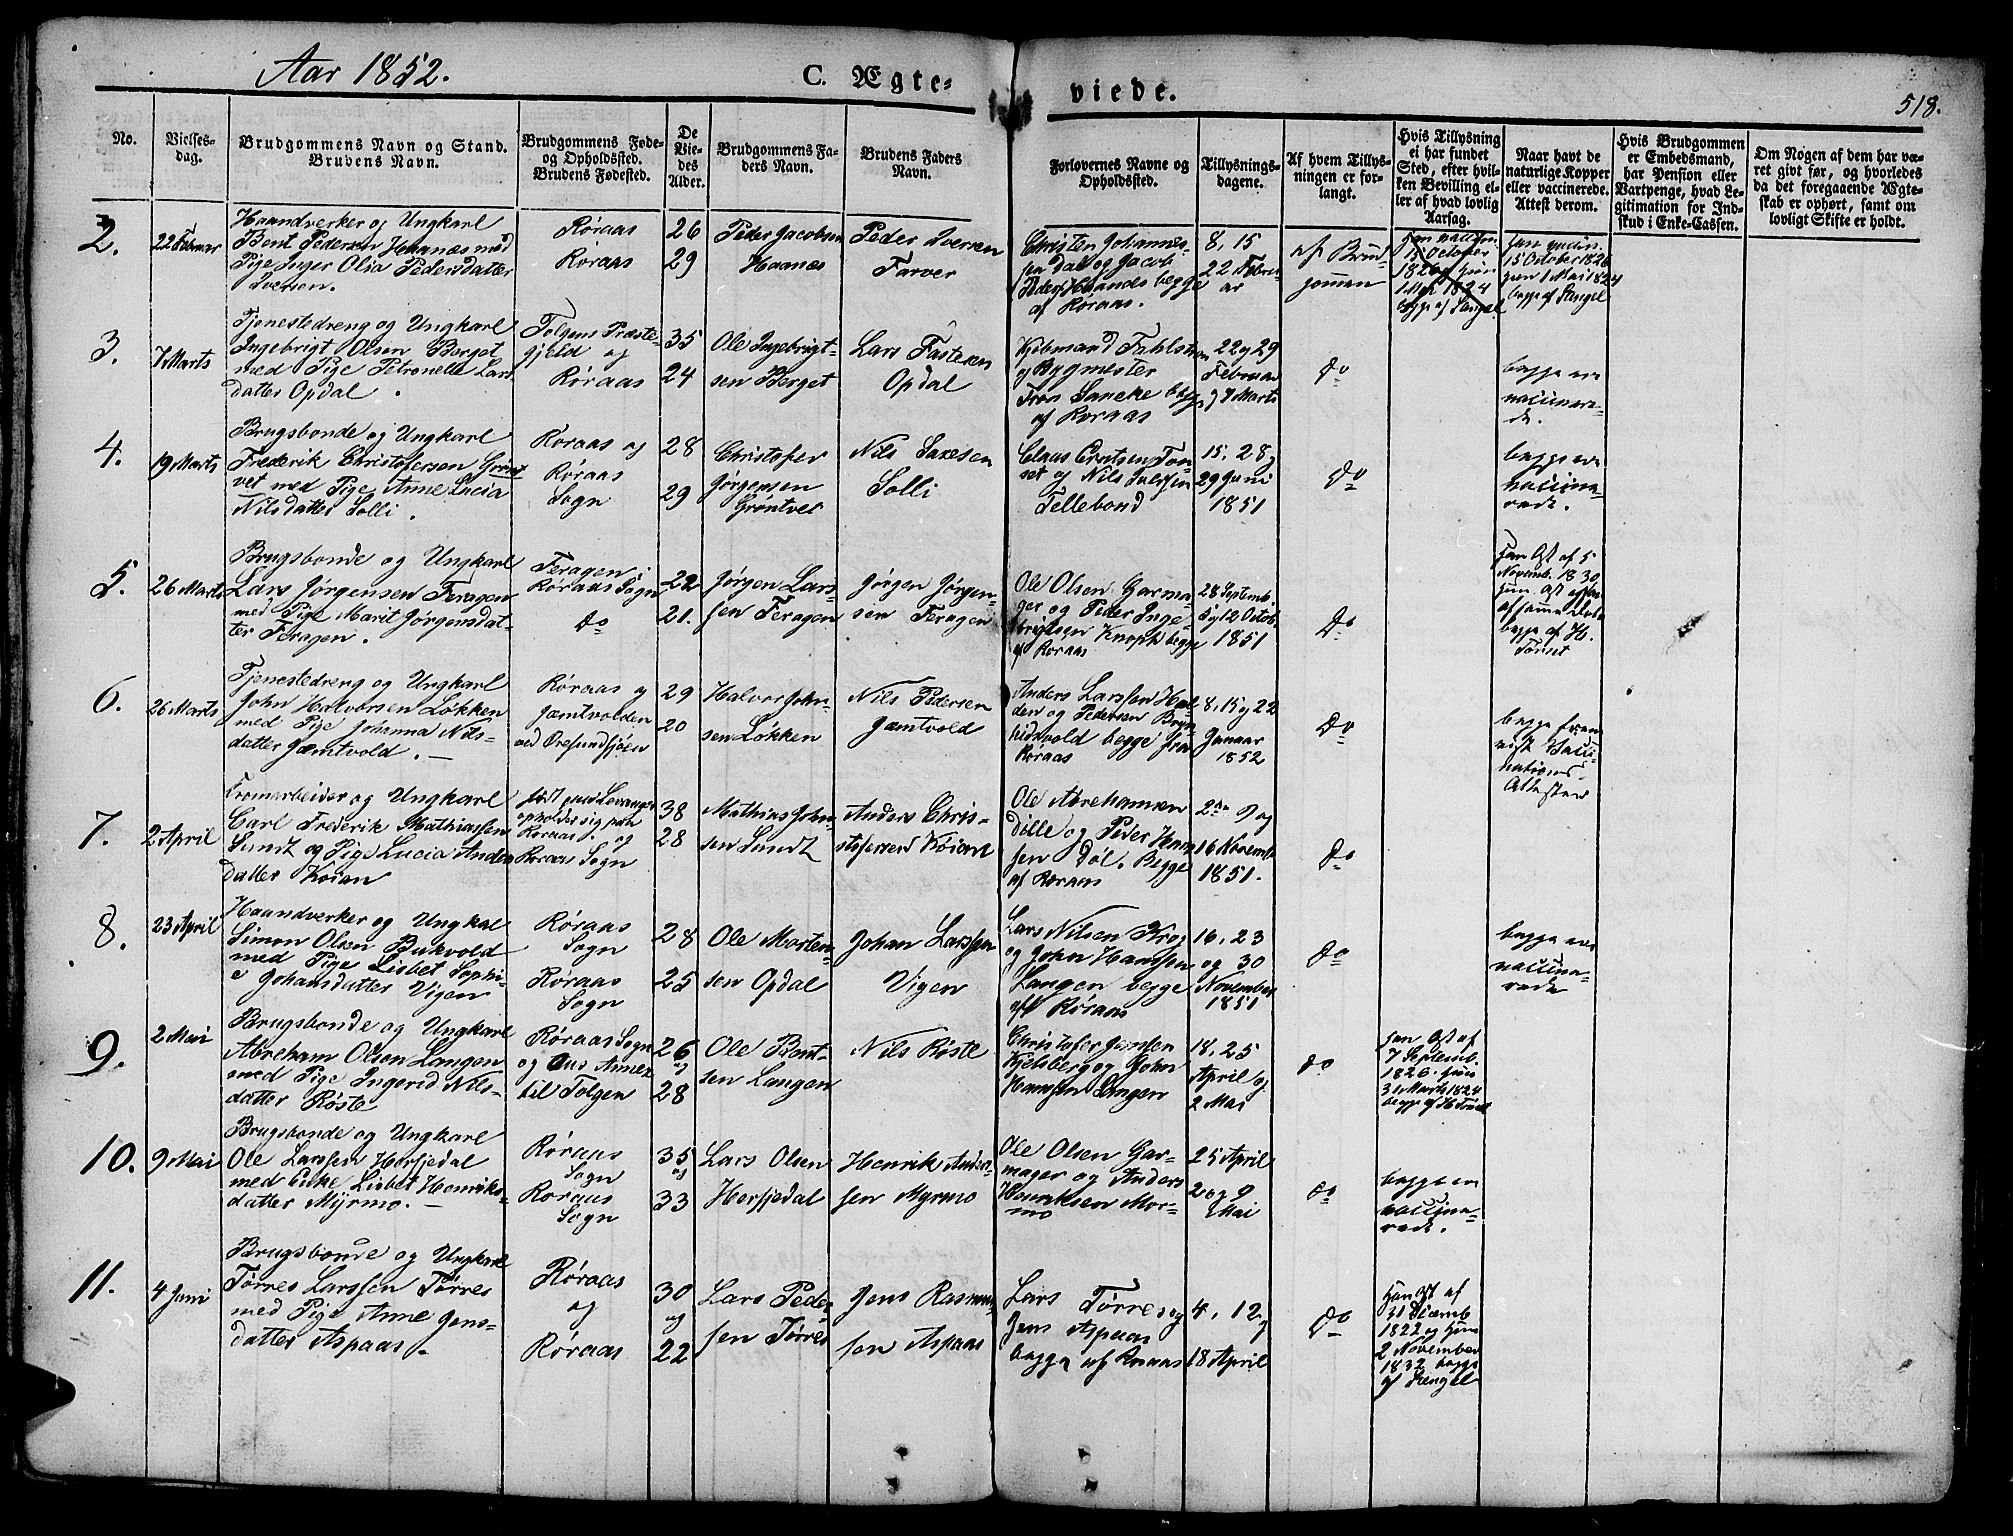 Aar 1852.
C. Ægte-
viede.
518.
No.
Vielses-
dag.
Brudgommens Navn og Stand.
Brudens Navn.
Brudgommens Føde-
og Opholdsted.
Brudens Fødested.
De
Vie-
des
Alder.
Brudgommens Fa-
ders Navn.
Brudens Faders
Navn.
Forlovernes Navne og
Opholdsted.
Tillysnings-
dagene.
Af hvem Tillys-
ningen er for-
langt.
Hvis Tillysning
ei har fundet
Sted, efter hvil-
ken Bevilling el-
ler af hvad lovlig
Aarsag.
Naar havt de
naturlige Kopper
eller vaccinerede.
Attest derom.
Hvis Brudgommen
er Embedsmand,
har Pension eller
Vartpenge, hvad Le-
gitimation for Ind-
skud i Enke-Cassen.
Om Nogen af dem har væ-
ret givt før, og hvorledes
da det foregaaende Ægte-
skab er ophørt, samt om
lovligt Skifte er holdt.
2.
22 Februar
Haandverker og Ungkarl
Bent Pedersen Haanæs med
Pige Inger Olia Pedersdatter
Iversen.
Røraas
Røraas
26
29
Peder Jacobsen
Haanæs
Peder Iversen
Farver
Christen Johannes-
sen Dal og Jacob
Peders Haanæs begge
af Røraas.
8, 15
22 Febru-
ar
af Brud-
gommen
han vaccin.
15 October
1826 hun
1 Mai 1824
begge af Stengel
han vaccin.
15 October 1826
hun 1 Mai 1824
begge af Stengel
3.
7 Marts
Tjenestedreng og Ungkarl
Ingebrigt Olsen Berget
med Pige Petronelle Lars
datter Opdal.
Tolgens Præste-
gjeld og
Røraas
35
24
Ole Ingebrigt-
sen Berget
Lars Fastesen
Opdal
Kjøbmand Fahlstrøm
og Bygmester
Tron Lancke begge
af Roraas
22 og 29
Februar
og 7 Marts
Do
begge ere
vaccinere-
de.
4.
19 Marts
Brugsbonde og Ungkarl
Frederik Christofersen Grønt
vet med Pige Anne Lucia
Nilsdatter Solli.
Roraas og
Røraas
Sogn
28
29
Christofer
Jørgensen
Grøntvet
Nils Saxesen
Solli
Claus Erntsen Ton-
set og Nils
Tellebond
15, 28 og
29 Juni
1851
Do
begge ere
vaccine-
rede.
5.
26 Marts
Brugsbonde og Ungkarl
Lars Jørgensen Feragen
med Pige Marit Jørgensdat-
ter Feragen.
Feragen i
Røraas Sogn
Do
22
21.
Jørgen Lars-
sen Feragen
Jørgen Jørgen-
sen Feragen
Ole Olsen Garma-
ger og Peder Inge-
brigtsen Knoph begge
af Roraas
28 Septemb.
5 og 12 Octob.
1851
Do
han Att af 5
Novemb. 1830
hun Att
af samme
begge af H.
Tonset
6.
26 Marts
Tjenestedreng og Ungkarl
John Halvorsen Løkken
med Pige Johanna Nils-
datter Jamtvold.
Røraas og
Jæmtvolden
ved Øresundsjøen
29
20
Halvor John-
sen Løkken
Nils Pedersen
Jamtvold
Anders Larssen
den og Pedersen Bryn-
hildsvold begge fra
Røraas
8, 15 og 22
Januar
1852
Do
begge frem-
vist Vacci-
nations-
Attester
7.
2 April
Cromarbeider og Ungkarl
Carl Frederik Mathiassen
Sundt og Pige Lucia Anders
datter Koien
født paa Levanger
opholder sig paa
Roraas. og
Roraas Sogn
38
28
Mathias John-
sen Sundt
Anders Chris-
stofersen Køien
Ole Abrehamsen
Dille og Peder Han
sen Døl. Begge
af Roraas
2den 9 og
16 Novemb.
1851.
Do
8.
23 April
Haandverker og Ungkal
Simon Olsen Bukvold
med Pige Lisbet Sophi-
e Johansdatter Vigen
Røraas
Sogn
Røraas
Sogn
28
25
Ole Morten-
sen Opdal
Johan Larssen
Vigen
Lars Nilsen Krog
og John Hansen
Langen begge
af Røraas
16, 23
og 30
November
1851
Do
begge ere
vaccine-
rede
9.
2 Mai
Brugsbonde og Ungkarl
Abreham Olsen Langen
med Pige Ingerid Nils-
datter Røste
Røraas Sogn
og Aus Annex
til Tolgen
26
og
28
Ole Bent-
sen Langen
Nils Røste
Christofer Jansen
Kjelsberg og John
Hansen Langen
18, 25
April og
2 Mai
do
han Att af
7 Septemb.
1826. hun
31 Marts 1824
begge af H Tonset
10.
9 Mai
Brugsbonde og Ungkarl
Ole Larssen Horsjedal
med Enke Lisbet Henriks-
datter Myrmo.
Røraas
Sogn
Roraas
Sogn
35
og
33
Lars Olsen
Horsjedal
Henrik Ander-
sen Myrmo
Ole Olsen Gar-
mager og Anders
Henriksen Mor-
mo
25 April
2 og 9
Mai
do
begge ere
vaccine-
rede.
11.
4 Juni
Brugsbonde og Ungkarl
Tørres Larssen Tørres
med Pige Anne Jens-
datter Aspaas.
Røraas
og
Røraas
30
og
22
Lars Peder
sen Tørres
Jens Rasmus-
sen Aspaas
Lars Tørres og
Jens Aspaas
begge af Roraas
4, 12 og
18 April
Do
Han Att af
31 Decemb
1822 og hun
2 November
1832 begge
af Stengel